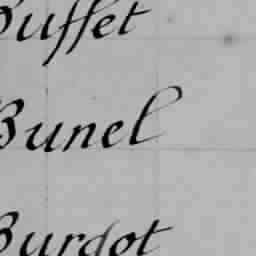 Buffet
Bunel
Burdot